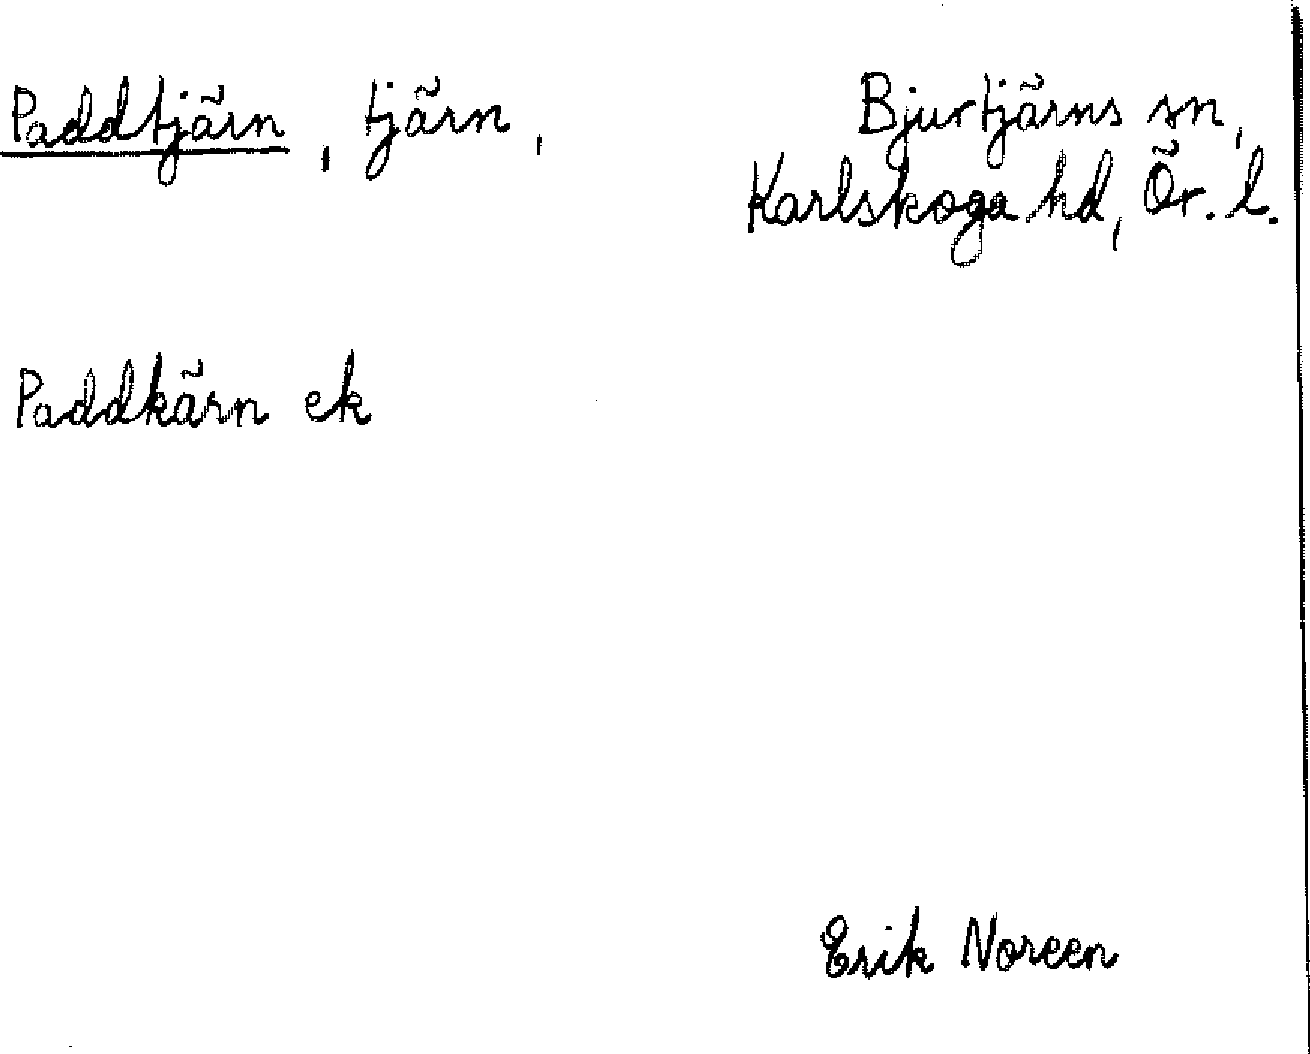 Paddtjärn, tjärn,
Bjurtjärns sn,
Karlskoga hd, Ör. l.
Paddkärn ek
Erik Noreen